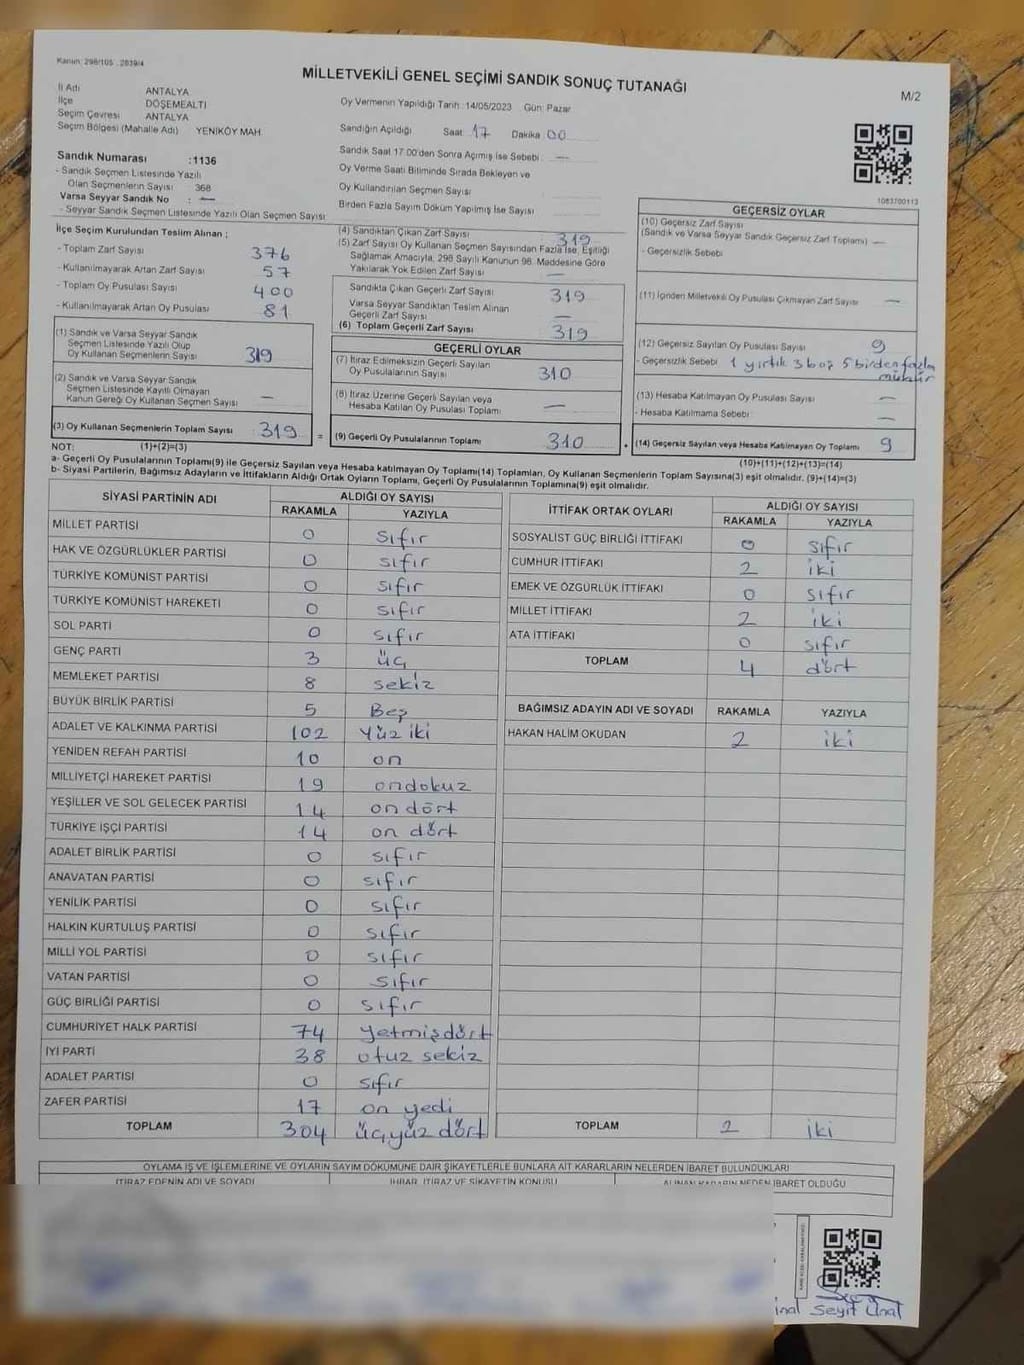 Kanun: 298/105 , 2839/4
MİLLETVEKİLİ GENEL SEÇİMİ SANDIK SONUÇ TUTANAĞI
M/2
İl Adı ANTALYA
İlçe DÖŞEMEALTI
Seçim Çevresi ANTALYA
Seçim Bölgesi (Mahalle Adı) YENİKÖY MAH.
Oy Vermenin Yapıldığı Tarih :14/05/2023 Gün: Pazar
Sandığın Açıldığı Saat 17 Dakika 00
Sandık Saat 17:00'den Sonra Açımış İse Sebebi : —
Oy Verme Saati Bitiminde Sırada Bekleyen ve
Oy Kullandırılan Seçmen Sayısı
Birden Fazla Sayım Döküm Yapılmış İse Sayısı
Sandık Numarası :1136
- Sandık Seçmen Listesinde Yazılı
Olan Seçmenlerin Sayısı 368
Varsa Seyyar Sandık No : —
- Seyyar Sandık Seçmen Listesinde Yazılı Olan Seçmen Sayısı
1083700113
İlçe Seçim Kurulundan Teslim Alınan ;
- Toplam Zarf Sayısı 376
-Kullanılmayarak Artan Zarf Sayısı 57
- Toplam Oy Pusulası Sayısı 400
- Kullanılmayarak Artan Oy Pusulası 81
(1) Sandık ve Varsa Seyyar Sandık
Seçmen Listesinde Yazılı Olup
Oy Kullanan Seçmenlerin Sayısı 319
(2) Sandık ve Varsa Seyyar Sandık
Seçmen Listesinde Kayıtlı Olmayan
Kanun Gereği Oy Kullanan Seçmen Sayısı —
(3) Oy Kullanan Seçmenlerin Toplam Sayısı 319 =
(4) Sandıktan Çıkan Zarf Sayısı 319
(5) Zarf Sayısı Oy Kullanan Seçmen Sayısından Fazla İse, Eşitliği
Sağlamak Amacıyla, 298 Sayılı Kanunun 98. Maddesine Göre
Yakılarak Yok Edilen Zarf Sayısı —
Sandıkta Çıkan Geçerli Zarf Sayısı 319
Varsa Seyyar Sandıktan Teslim Alınan
Geçerli Zarf Sayısı —
(6) Toplam Geçerli Zarf Sayısı 319
GEÇERLİ OYLAR
(7) İtiraz Edilmeksizin Geçerli Sayılan
Oy Pusulalarının Sayısı 310
(8) İtiraz Üzerine Geçerli Sayılan veya
Hesaba Katılan Oy Pusulası Toplamı —
(9) Geçerli Oy Pusulalarının Toplamı 310
GEÇERSİZ OYLAR
(10) Geçersiz Zarf Sayısı
(Sandık ve Varsa Seyyar Sandık Geçersiz Zarf Toplamı) —
- Geçersizlik Sebebi
(11) İçinden Milletvekili Oy Pusulası Çıkmayan Zarf Sayısı —
(12) Geçersiz Sayılan Oy Pusulası Sayısı 9
- Geçersizlik Sebebi 1 yırtık 3 boş 5 birden fazla
mühür
(13) Hesaba Katılmayan Oy Pusulası Sayısı —
- Hesaba Katılmama Sebebi —
(14) Geçersiz Sayılan veya Hesaba Katılmayan Oy Toplamı 9
NOT: (1)+(2)=(3)
(10)+(11)+(12)+(13)=(14)
a- Geçerli Oy Pusulalarının Toplamı(9) ile Geçersiz Sayılan veya Hesaba katılmayan Oy Toplamı(14) Toplamları, Oy Kullanan Seçmenlerin Toplam Sayısına(3) eşit olmalıdır. (9)+(14)=(3)
b- Siyasi Partilerin, Bağımsız Adayların ve İttifakların Aldığı Ortak Oyların Toplamı, Geçerli Oy Pusulalarının Toplamına(9) eşit olmalıdır.
SİYASİ PARTİNİN ADI ALDIĞI OY SAYISI
RAKAMLA YAZIYLA
MİLLET PARTİSİ 0 sıfır
HAK VE ÖZGÜRLÜKLER PARTİSİ 0 sıfır
TÜRKİYE KOMÜNİST PARTİSİ 0 sıfır
TÜRKİYE KOMÜNİST HAREKETİ 0 sıfır
SOL PARTİ 0 sıfır
GENÇ PARTİ 3 üç
MEMLEKET PARTİSİ 8 sekiz
BÜYÜK BİRLİK PARTİSİ 5 Beş
ADALET VE KALKINMA PARTİSİ 102 Yüz iki
YENİDEN REFAH PARTİSİ 10 on
MİLLİYETÇİ HAREKET PARTİSİ 19 ondokuz
YEŞİLLER VE SOL GELECEK PARTİSİ 14 on dört
TÜRKİYE İŞÇİ PARTİSİ 14 on dört
ADALET BİRLİK PARTİSİ 0 sıfır
ANAVATAN PARTİSİ 0 sıfır
YENİLİK PARTİSİ 0 sıfır
HALKIN KURTULUŞ PARTİSİ 0 sıfır
MİLLİ YOL PARTİSİ 0 sıfır
VATAN PARTİSİ 0 sıfır
GÜÇ BİRLİĞİ PARTİSİ 0 sıfır
CUMHURİYET HALK PARTİSİ 74 yetmişdört
İYİ PARTİ 38 otuz sekiz
ADALET PARTİSİ 0 sıfır
ZAFER PARTİSİ 17 on yedi
TOPLAM 304 üçyüz dört
İTTİFAK ORTAK OYLARI ALDIĞI OY SAYISI
RAKAMLA YAZIYLA
SOSYALİST GÜÇ BİRLİĞİ İTTİFAKI 0 sıfır
CUMHUR İTTİFAKI 2 iki
EMEK VE ÖZGÜRLÜK İTTİFAKI 0 sıfır
MİLLET İTTİFAKI 2 iki
ATA İTTİFAKI 0 sıfır
TOPLAM 4 dört
BAĞIMSIZ ADAYIN ADI VE SOYADI RAKAMLA YAZIYLA
HAKAN HALİM OKUDAN 2 iki
TOPLAM 2 iki
OYLAMA İŞ VE İŞLEMLERİNE VE OYLARIN SAYIM DÖKÜMÜNE DAİR ŞİKAYETLERLE BUNLARA AİT KARARLARIN NELERDEN İBARET BULUNDUKLARI
İTİRAZ EDENİN ADI VE SOYADI İHBAR, İTİRAZ VE ŞİKAYETİN KONUSU ALINAN KARARIN NEDEN İBARET OLDUĞU
Seyit Ünal